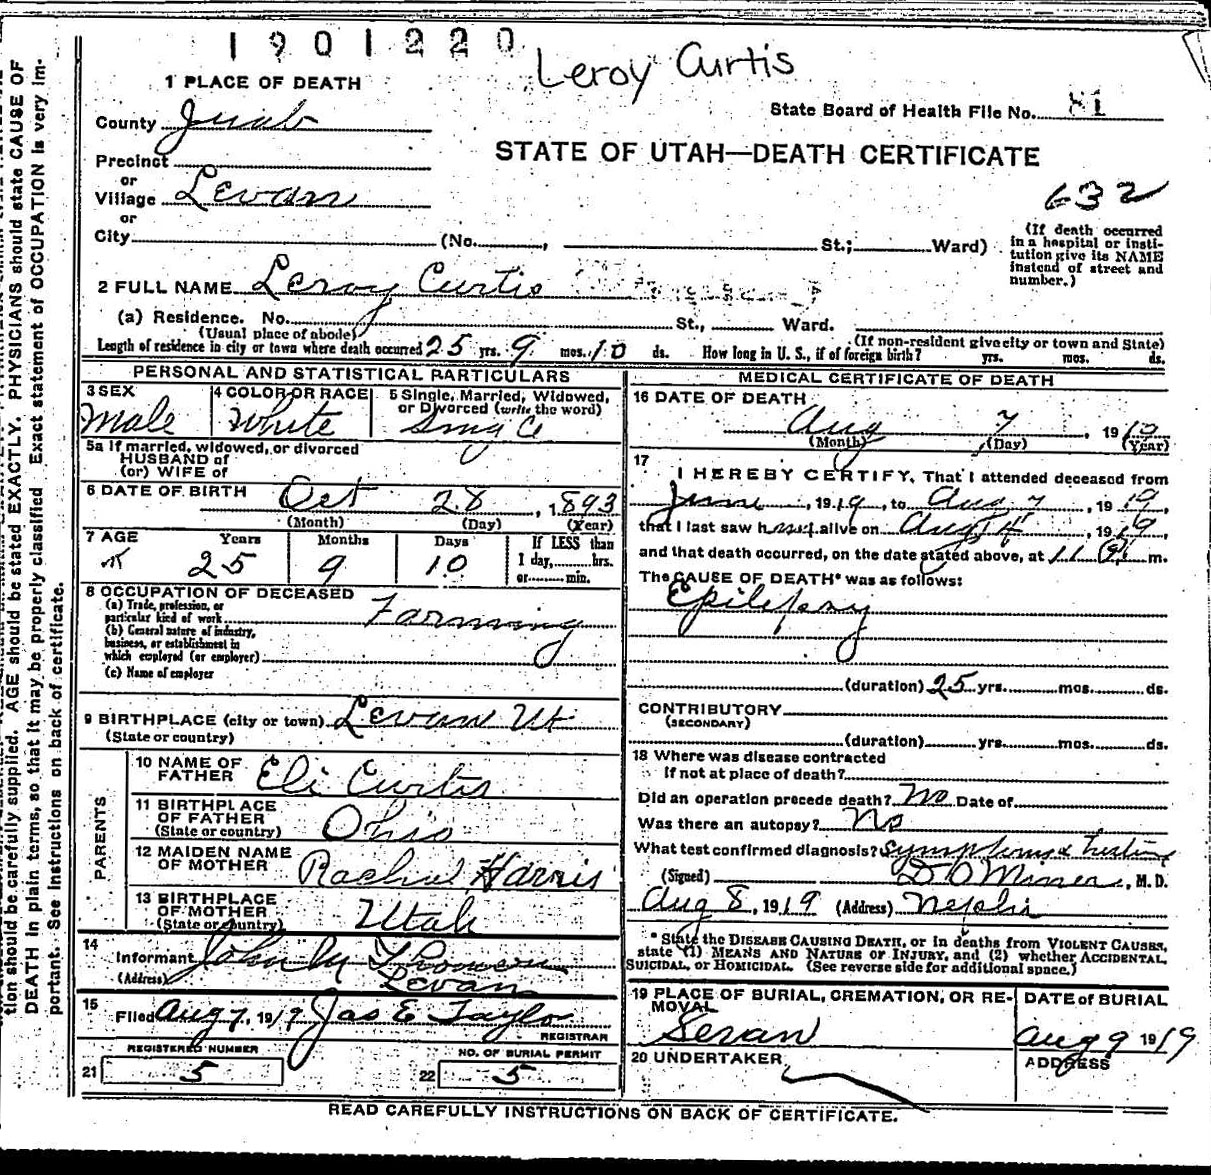 1901220
Leroy Curtis
1 PLACE OF DEATH
State Board of Health File No. 81
County Juab
STATE OF UTAH—DEATH CERTIFICATE
Precinct
or
Village Levan
632
or
City (No. , St.; Ward)
(If death occurred
in a hospital or insti-
tution give its NAME
instead of street and
number.)
2 FULL NAME Leroy Curtis
(a) Residence. No. St., Ward.
(Usual place of abode) (If non-resident give city or town and State)
Length of residence in city or town where death occurred 25 yrs. 9 mos. 10 ds. How long in U. S., if of foreign birth? yrs. mos. ds.
PERSONAL AND STATISTICAL PARTICULARS
3 SEX
Male
4 COLOR OR RACE
White
5 Single, Married, Widowed,
or Divorced (write the word)
5a If married, widowed, or divorced
HUSBAND of
(or) WIFE of
6 DATE OF BIRTH Oct 28, 1893
(Month) (Day) (Year)
7 AGE Years Months Days
25 9 10
If LESS than
1 day, hrs.
or min.
8 OCCUPATION OF DECEASED
(a) Trade, profession, or
particular kind of work Farming
(b) General nature of industry,
business, or establishment in
which employed (or employer)
(c) Name of employer
9 BIRTHPLACE (city or town) Levan Ut
(State or country)
PARENTS
10 NAME OF
FATHER Eli Curtis
11 BIRTHPLACE
OF FATHER
(State or country) Ohio
12 MAIDEN NAME
OF MOTHER Rachel Harris
13 BIRTHPLACE
OF MOTHER
(State or country) Utah
14
Informant John M
(Address) Levan
15
Filed Aug 7, 1919 Jas E Taylor
REGISTRAR
REGISTERED NUMBER
21 5
NO. OF BURIAL PERMIT
22 5
MEDICAL CERTIFICATE OF DEATH
16 DATE OF DEATH
Aug 7, 1919
(Month) (Day) (Year)
17
I HEREBY CERTIFY, That I attended deceased from
June, 1919, to Aug 7, 1919,
that I last saw him alive on Aug, 1919,
and that death occurred, on the date stated above, at 11 m.
The CAUSE OF DEATH* was as follows:
Epilepsy
(duration) 25 yrs. mos. ds.
CONTRIBUTORY
(SECONDARY)
(duration) yrs. mos. ds.
18 Where was disease contracted
if not at place of death?
Did an operation precede death? No Date of
Was there an autopsy? No
What test confirmed diagnosis? Symptoms &
(Signed) Miner, M. D.
Aug 8, 1919 (Address) Nephi
* State the DISEASE CAUSING DEATH, or in deaths from VIOLENT CAUSES,
state (1) MEANS AND NATURE OF INJURY, and (2) whether ACCIDENTAL,
SUICIDAL, or HOMICIDAL. (See reverse side for additional space.)
19 PLACE OF BURIAL, CREMATION, OR RE-
MOVAL
DATE of BURIAL
Aug 9 1919
20 UNDERTAKER
ADDRESS
READ CAREFULLY INSTRUCTIONS ON BACK OF CERTIFICATE.
tion should be carefully supplied. AGE should be stated EXACTLY. PHYSICIANS should state CAUSE OF
DEATH in plain terms, so that it may be properly classified. Exact statement of OCCUPATION is very im-
portant. See instructions on back of certificate.